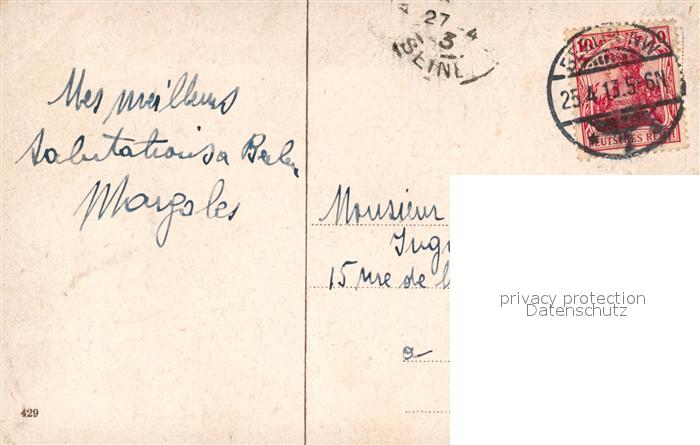 Mes meilleurs
salutations a Berlin
Margoles
429
27 4
3
SEINE
10 10
BERLIN NW.
25.4.13.5-6N
DEUTSCHES REICH
Monsieur
15 rue de l
a
privacy protection
Datenschutz